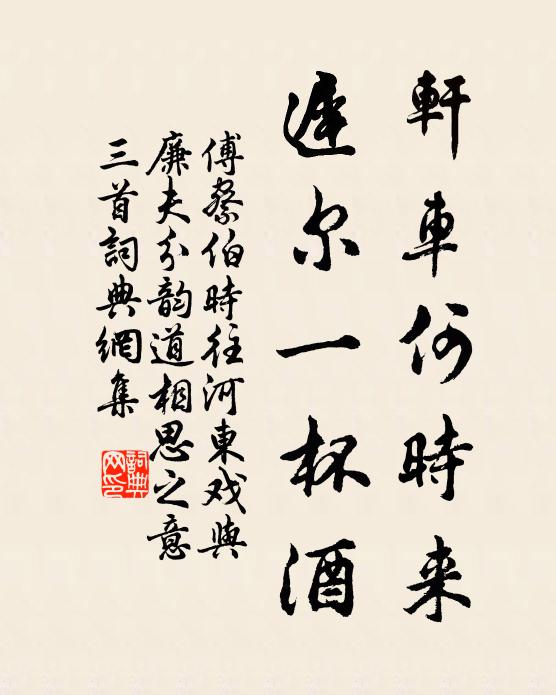 軒車何時来
遲尔一杯酒
傅察伯時往河東戏與
廉夫分韵道相思之意
三首詞典網集
詞典网印